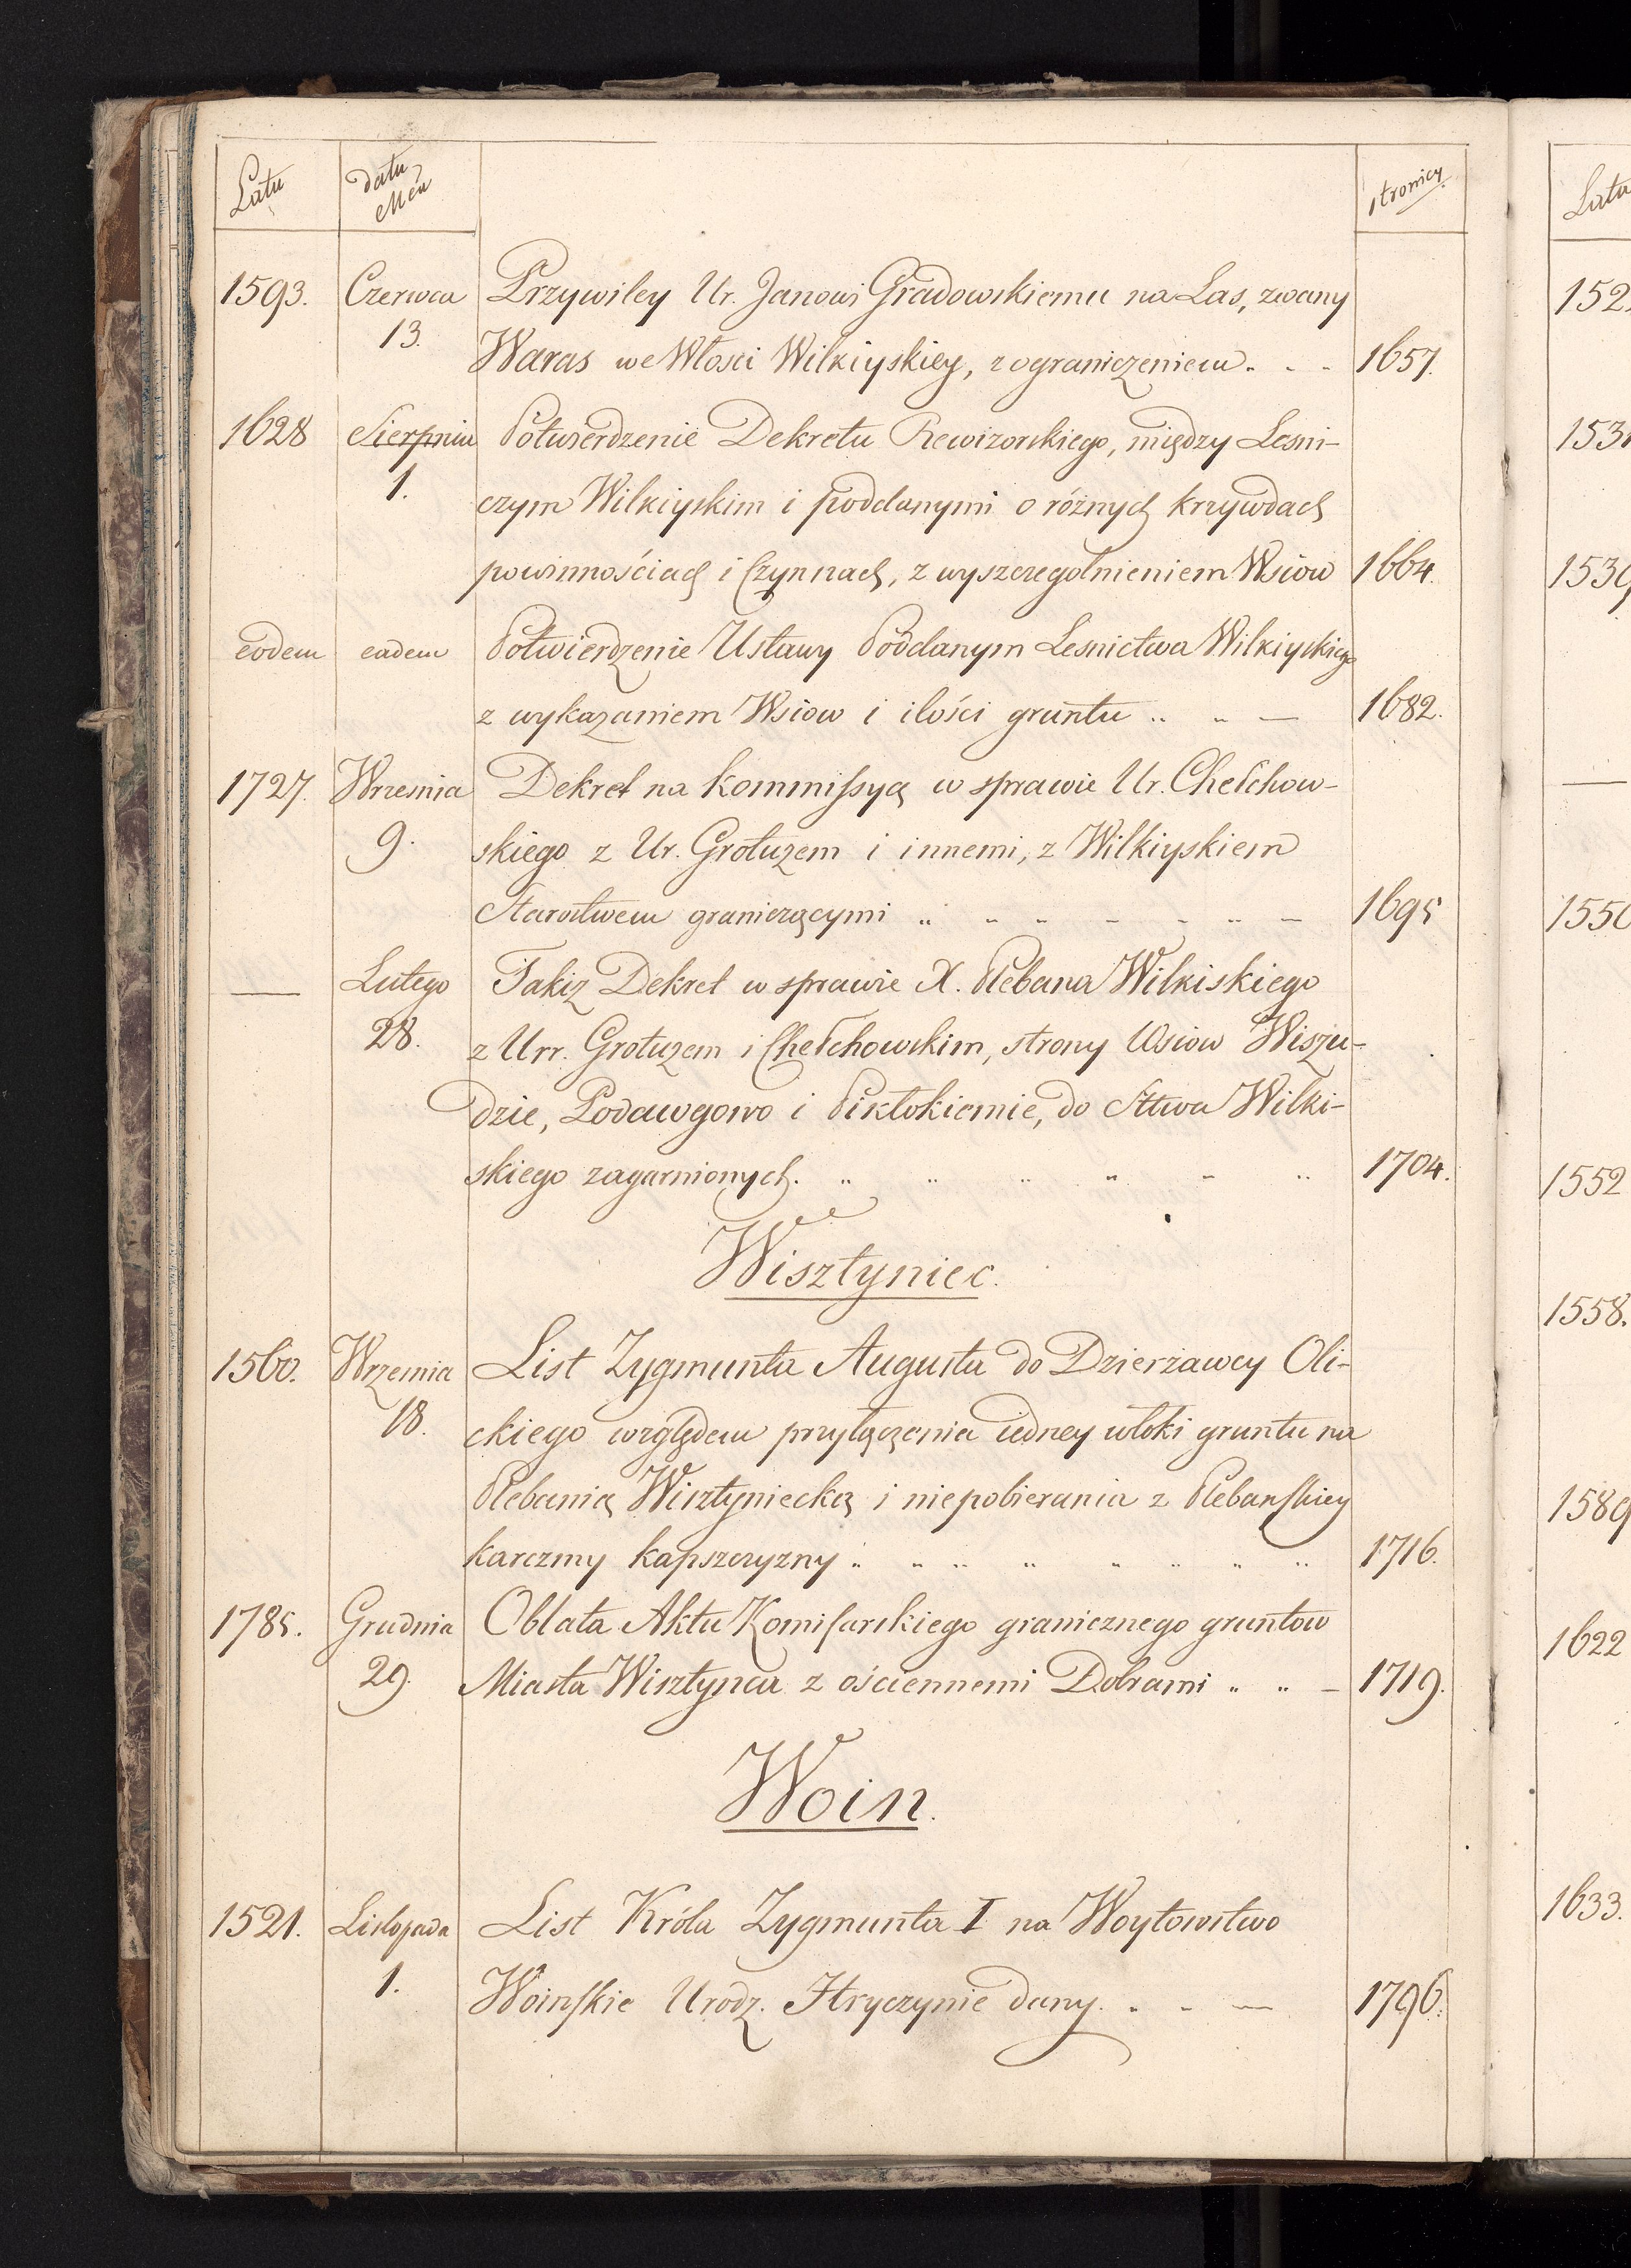 Lata
datu
Mca
stronicy
1593. Czerwca Przywiley Ur. Janowi Gradowskiemu na Las, zwany
13. Waras we Włosci Wilkiyskiey, z ograniczeniem. . . 1657.
1628 Sierpnia Potwierdzenie Dekretu Rewizorskiego, między Lesni-
1. czym Wilkiyskim i poddanymi o różnych krzywdach
powinnościach i Czynszach, z wyszczegolnieniem Wsiow 1664.
eodem eadem Potwierdzenie Ustawy Poddanym Lesnictwa Wilkiyskiego
z wykazaniem Wsiow i ilości gruntu .. .. — 1682.
1727. Wrzesnia Dekret na Kommissyą w sprawie Ur. Chełchow-
9. skiego z Ur. Grotuzem i innemi, z Wilkiyskiem
Starostwem graniczącymi .. .. .. — - .. — 1695
— Lutego Takiz Dekret w sprawie X. Plebana Wilkiskiego
28. z Urr. Grotuzem i Chełchowskim, strony Wsiow Wiszu-
dzie, Podawgowo i Piktokiemie, do Sttwa Wilki-
skiego zagarnionych. .. .. .. .. .. .. 1704.
Wisztyniec.
1560. Wrzesnia List Zygmunta Augusta do Dzierżawcy Oli-
18. ckiego względem przyłączenia iedney włoki gruntu na
Plebanią Wisztyniecką i niepobierania z Plebanskiey
karczmy kapszczyzny .. .. .. .. .. .. .. .. 1716.
1785. Grudnia Oblata Aktu Komisarskiego granicznego gruntow
29. Miasta Wisztynca z ościennemi Dobrami .. .. — 1719.
Woin.
1521. Listopada List Króla Zygmunta I na Woytowstwo
1. Woinskie Urodz. Hryczynie dany. . .. — 1796.
Lata
152
153
1539
—
1550
1552
1558.
1589
1622
1633.